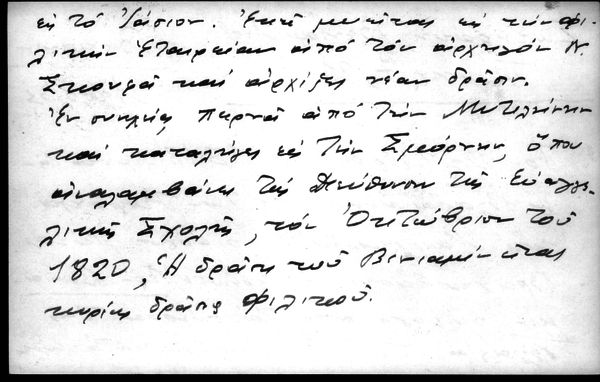 εἰς τό Ἰάσιον. Ἐκεῖ μυεῖται εἰς τήν Φι-
λικήν Ἑταιρείαν ἀπό τόν ἀρχηγόν Ν.
Σκουφᾶ καί ἀρχίζει νέαν δρᾶσιν.
Ἐν συνεχείᾳ περνᾶ ἀπό τήν Μυτιλήνην
καί καταλήγει εἰς τήν Σμύρνην, ὅπου
ἀναλαμβάνει τήν διεύθυνσιν τῆς Εὐαγγε-
λικῆς Σχολῆς, τόν Ὀκτώβριον τοῦ
1820, Ἡ δρᾶσις τοῦ Βενιαμίν εἶναι
κυρίως δρᾶσις Φιλικοῦ.